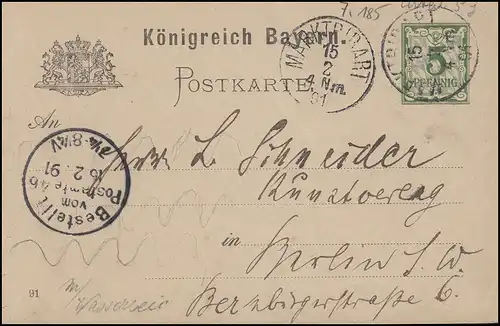 7. 185
Königreich Bayern.
POSTKARTE
MARKTBIBART
15
2
4. Nm.
91
5
PFENNIG
15
An
Herrn L. Schneider
Kunstverlag
in
Berlin S.W.
Bernburgerstraße 6.
Bestellt
vom
Postamte 46
16. 2. 91
7¼-8¼V
91